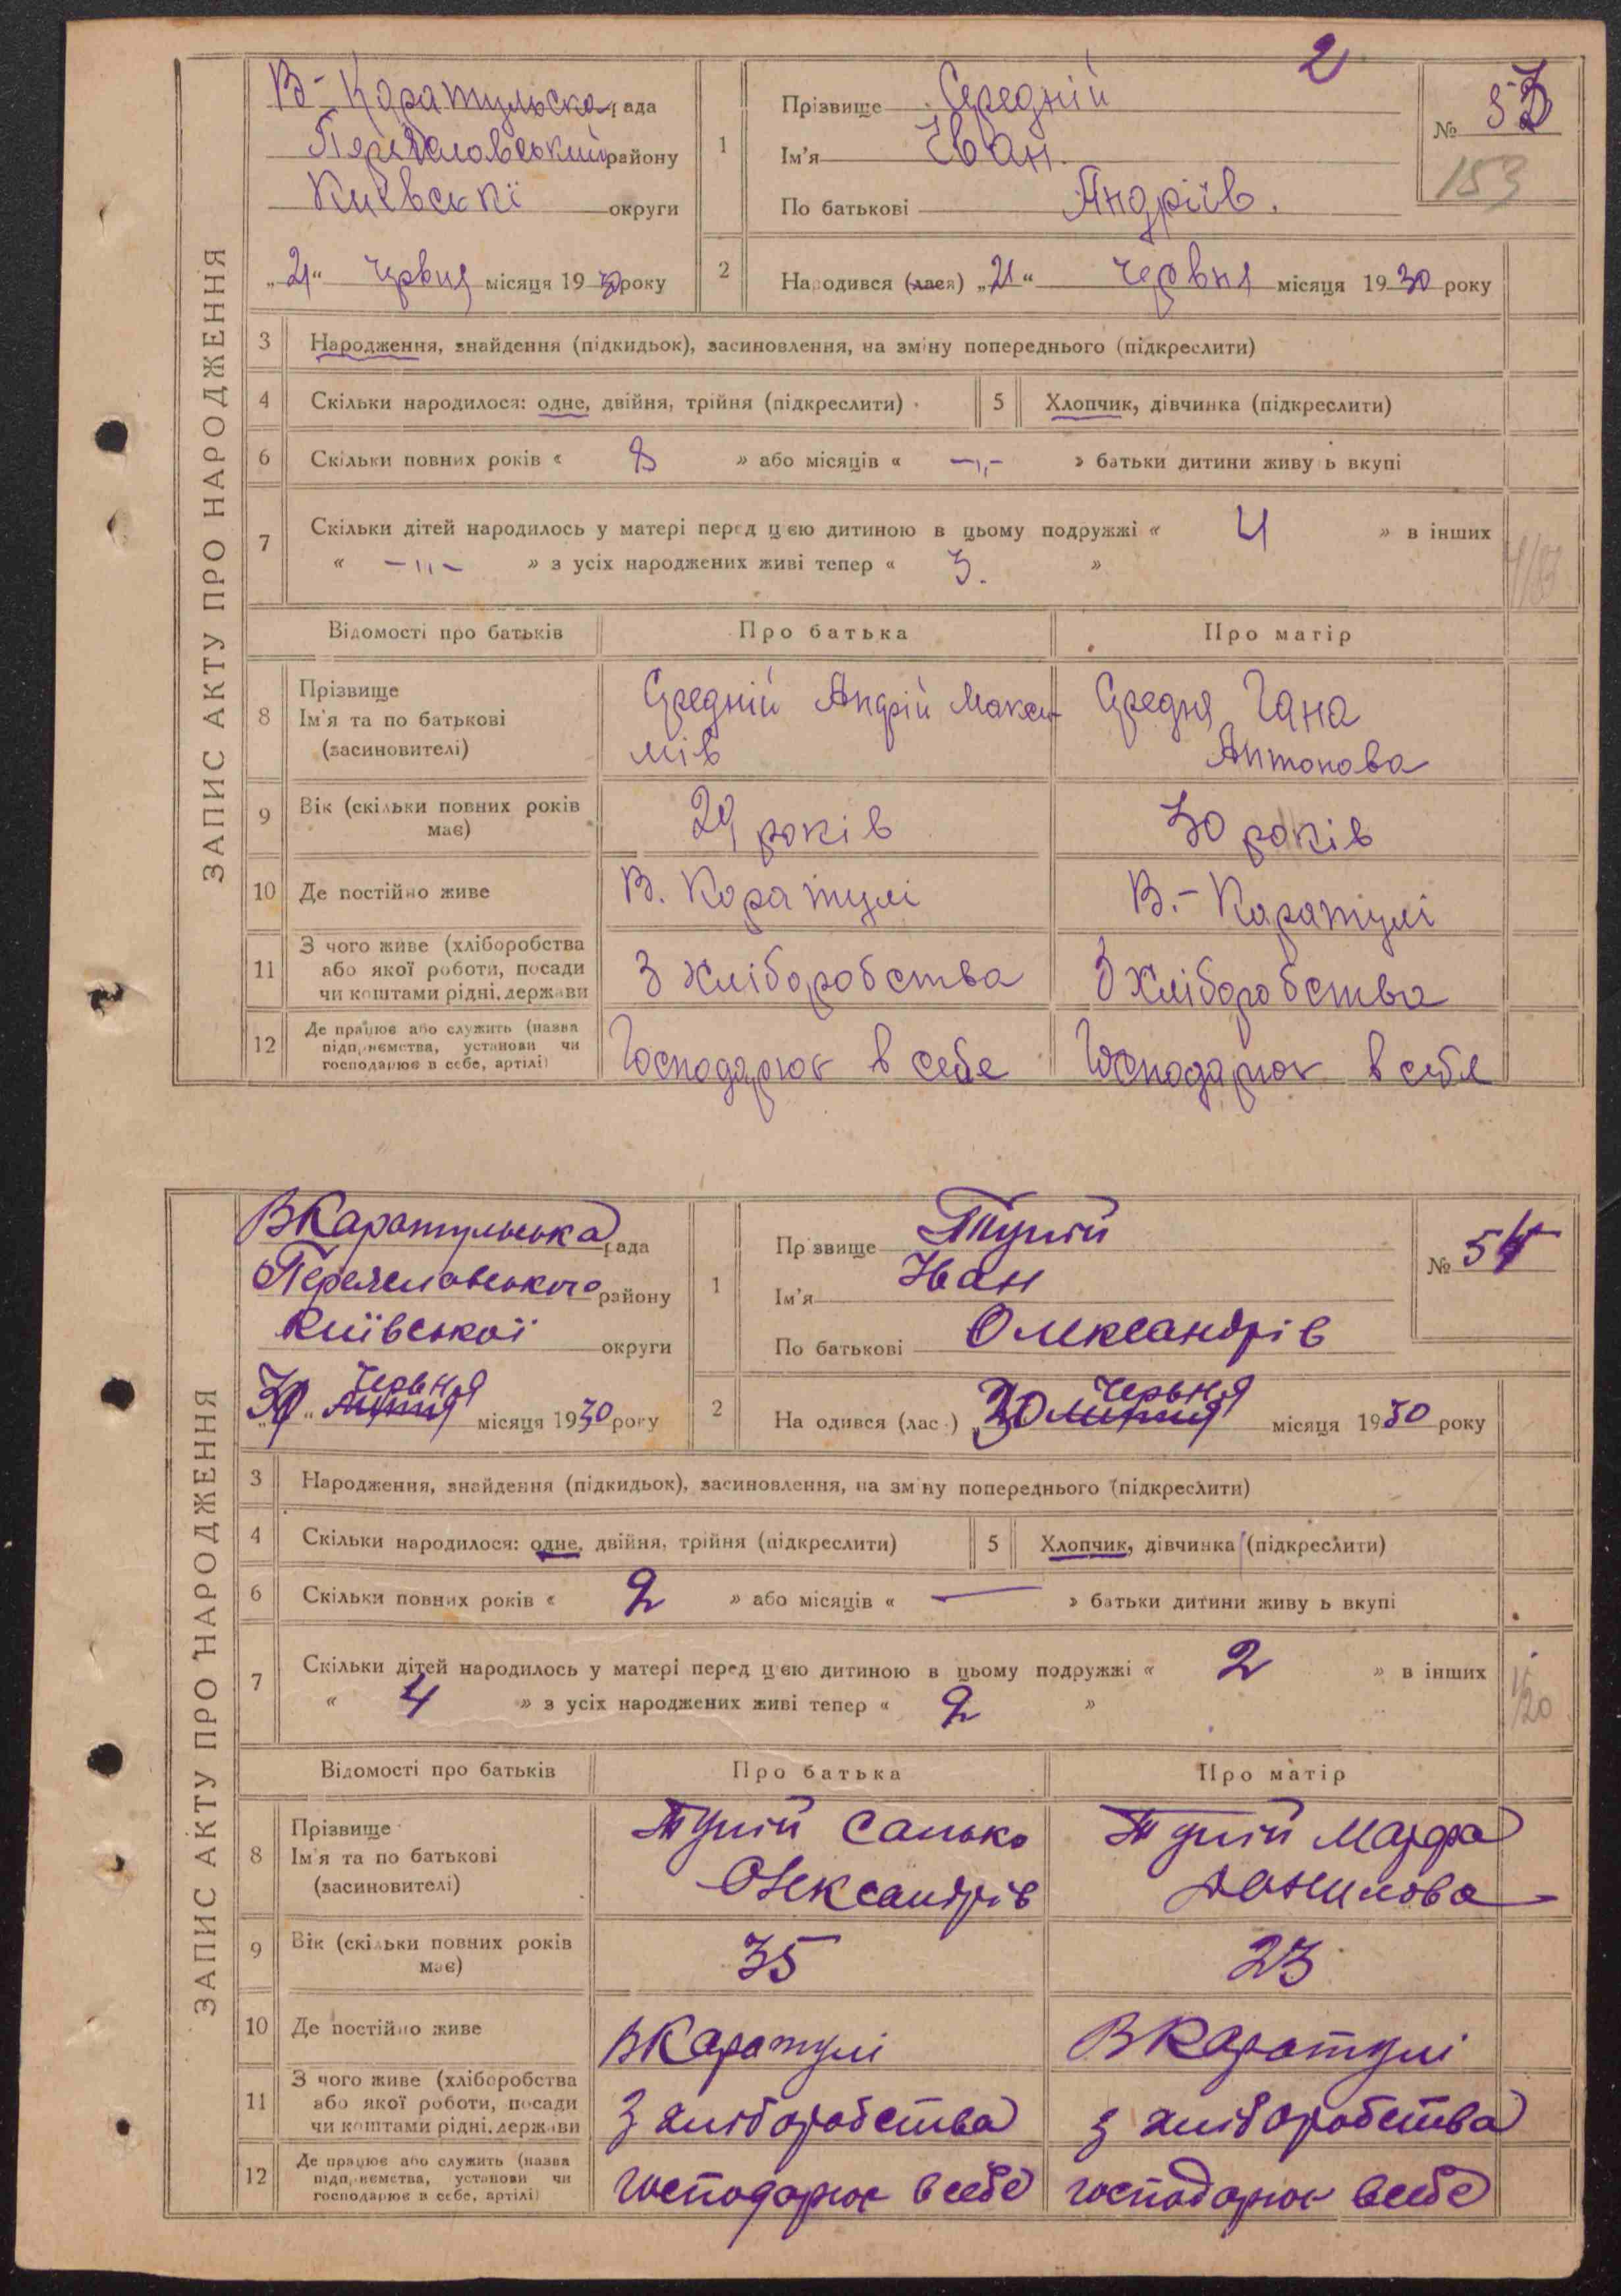 2
ЗАПИС АКТУ ПРО НАРОДЖЕННЯ
В-Каратульска рада
Переяславський району
Київські округи
„21“ Червня місяця 1930 року
1
Прізвище Середній
Ім'я Іван
По батькові Андріїв.
№ 53
153
2
Народився (лася) „21“ Червня місяця 1930 року
3 Народження, знайдення (підкидьок), засиновлення, на зміну попереднього (підкреслити)
4 Скільки народилося: одне, двійня, трійня (підкреслити)
5 Хлопчик, дівчинка (підкреслити)
6 Скільки повних років « 8 » або місяців « -„- » батьки дитини живуть вкупі
7 Скільки дітей народилось у матері перед цією дитиною в цьому подружжі « 4 » в інших
« -„- » з усіх народжених живі тепер « 3. »
Відомості про батьків Про батька Про матір
8 Прізвище
Ім'я та по батькові
(засиновителі)
Середній Андрій Макси-
мів
Середня Гана
Антонова
9 Вік (скільки повних років
має)
29 років
30 років
10 Де постійно живе
В. Каратулі
В.-Каратулі
11 З чого живе (хліборобства
або якої роботи, посади
чи коштами рідні, держави
З Хліборобства
З Хліборобства
12 Де працює або служить (назва
підприємства, установи чи
господарює в себе, артілі)
Господарює в себе
Господарює в себе
ЗАПИС АКТУ ПРО НАРОДЖЕННЯ
ВКаратульська рада
Київської округи
„30“ Червня місяця 1930 року
1
Прізвище
Ім'я Іван
По батькові Олександрів
№ 54
2
Народився (лась) 30 Червня місяця 1930 року
3 Народження, знайдення (підкидьок), засиновлення, на зміну попереднього (підкреслити)
4 Скільки народилося: одне, двійня, трійня (підкреслити)
5 Хлопчик, дівчинка (підкреслити)
6 Скільки повних років « 2 » або місяців « — » батьки дитини живуть вкупі
7 Скільки дітей народилось у матері перед цією дитиною в цьому подружжі « 2 » в інших
« 4 » з усіх народжених живі тепер « 2 »
Відомості про батьків Про батька Про матір
8 Прізвище
Ім'я та по батькові
(засиновителі)
Санько
Олександрів
Марфа
Данилова
9 Вік (скільки повних років
має)
35
23
10 Де постійно живе
ВКаратулі
ВКаратулі
11 З чого живе (хліборобства
або якої роботи, посади
чи коштами рідні, держави
з хліборобства
з хліборобства
12 Де працює або служить (назва
підприємства, установи чи
господарює в себе, артілі)
господарює всебе
господарює всебе